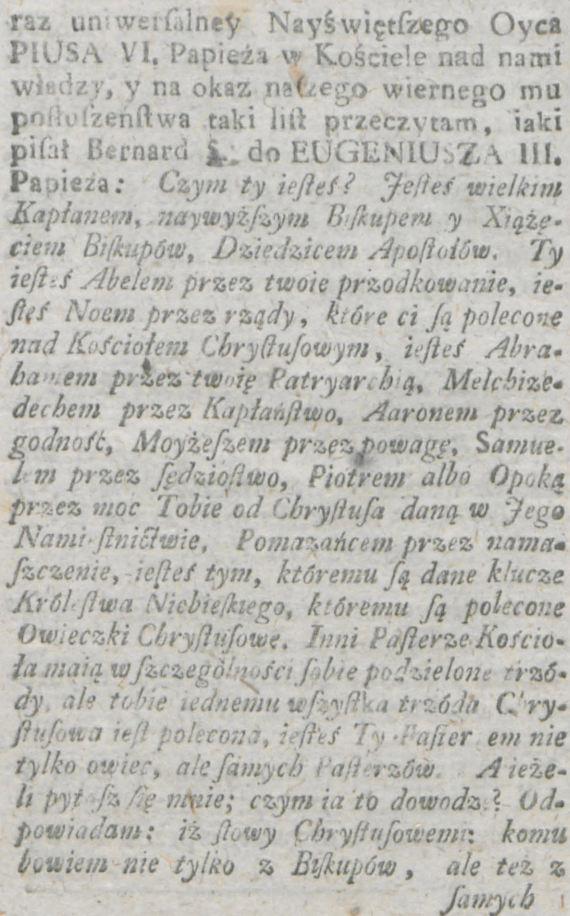 raz uniwerſalney Nayświętſzego Oyca
PIUSA VI. Papieża w Kościele nad nami
władzy, y na okaz naſzego wiernego mu
poſłuſzeńſtwa taki liſt przeczytam, iaki
piſał Bernard S. do EUGENIUSZA III.
Papieża: Czym ty ieſteś? Jeſteś wielkim
Kapłanem, naywyżſzym Biſkupem y Xiążę-
ciem Biſkupów, Dziedzicem Apoſtołów. Ty
ieſteś Abelem przez twoie przodkowanie, ie-
ſteś Noem przez rządy, które ci ſą polecone
nad Kościołem Chryſtuſowym, ieſteś Abra-
hamem przez twoię Patryarchią, Melchize-
dechem przez Kapłańſtwo, Aaronem przez
godność, Moyżeſzem przez powagę, Samue-
lem przez ſędzioſtwo, Piotrem albo Opoką
przez moc Tobie od Chryſtuſa daną w Jego
Namieſtnictwie, Pomazańcem przez nama-
ſzczenie, ieſteś tym, któremu ſą dane klucze
Króleſtwa Niebieſkiego, któremu ſą polecone
Owieczki Chryſtuſowe. Inni Paſterze Kościo-
ła maią w ſzczególności ſobie podzielone trzó-
dy, ale tobie iednemu wſzyſtka trzóda Chry-
ſtuſowa ieſt polecona, ieſteś Ty Paſterzem nie
tylko owiec, ale ſamych Paſterzów. A ieże-
li pytaſz ſię mnie; czym ia to dowodzę? Od-
powiadam: iż ſłowy Chryſtuſowemi: komu
bowiem nie tylko z Biſkupów, ale też z
ſamych